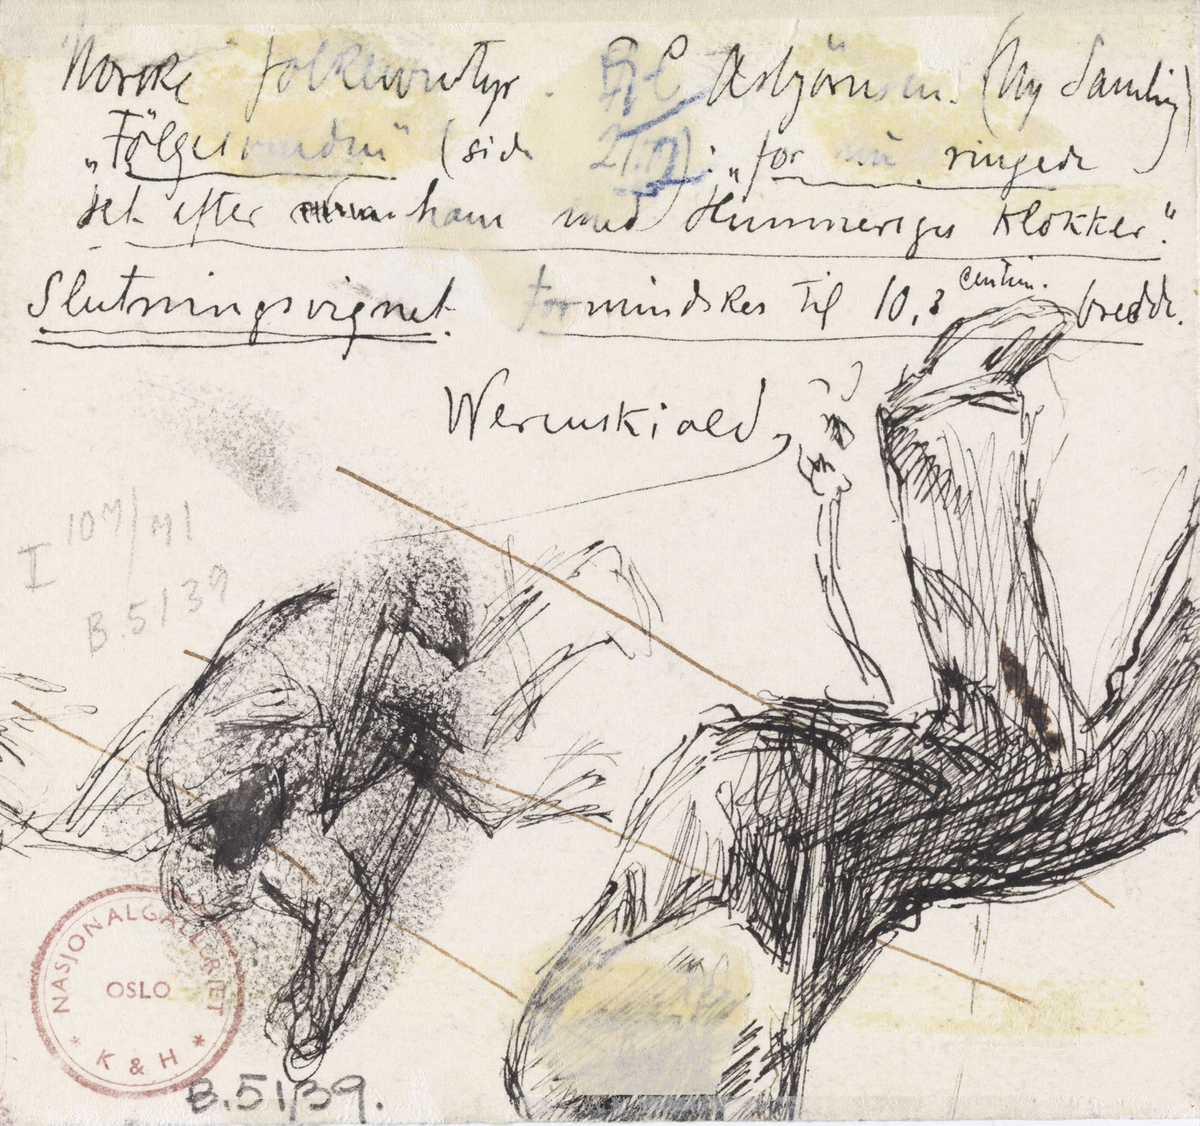 Norske folkeeventyr. Asbjörnsen. (Ny Samling)
„Fölgesvenden" (side 21.19): „for nu ringede
det efter ham med Himmeriges Klokker."
Slutningsvignet. Formindskes til 10,3 centim. bredde.
Werenskiold
I 10 M/M1
B.5139
NASJONALGALLERIET
OSLO
* K & H *
B.5139.